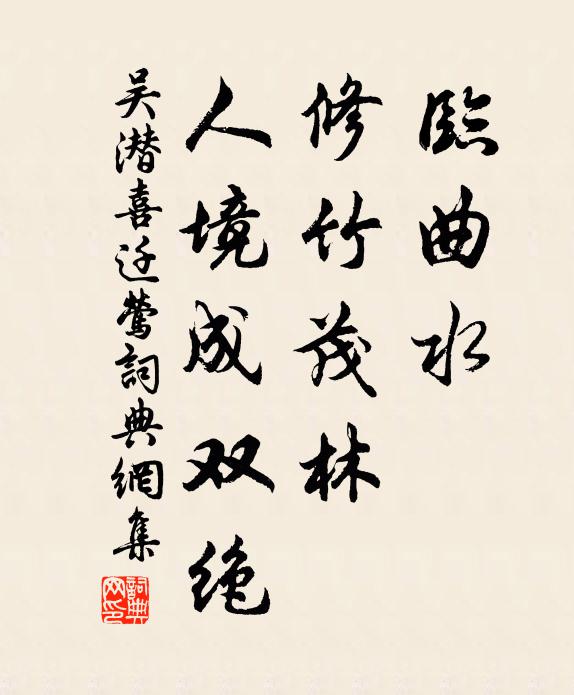 临曲水
修竹茂林
人境成双绝
吴潜喜迁莺詞典網集
詞典网印